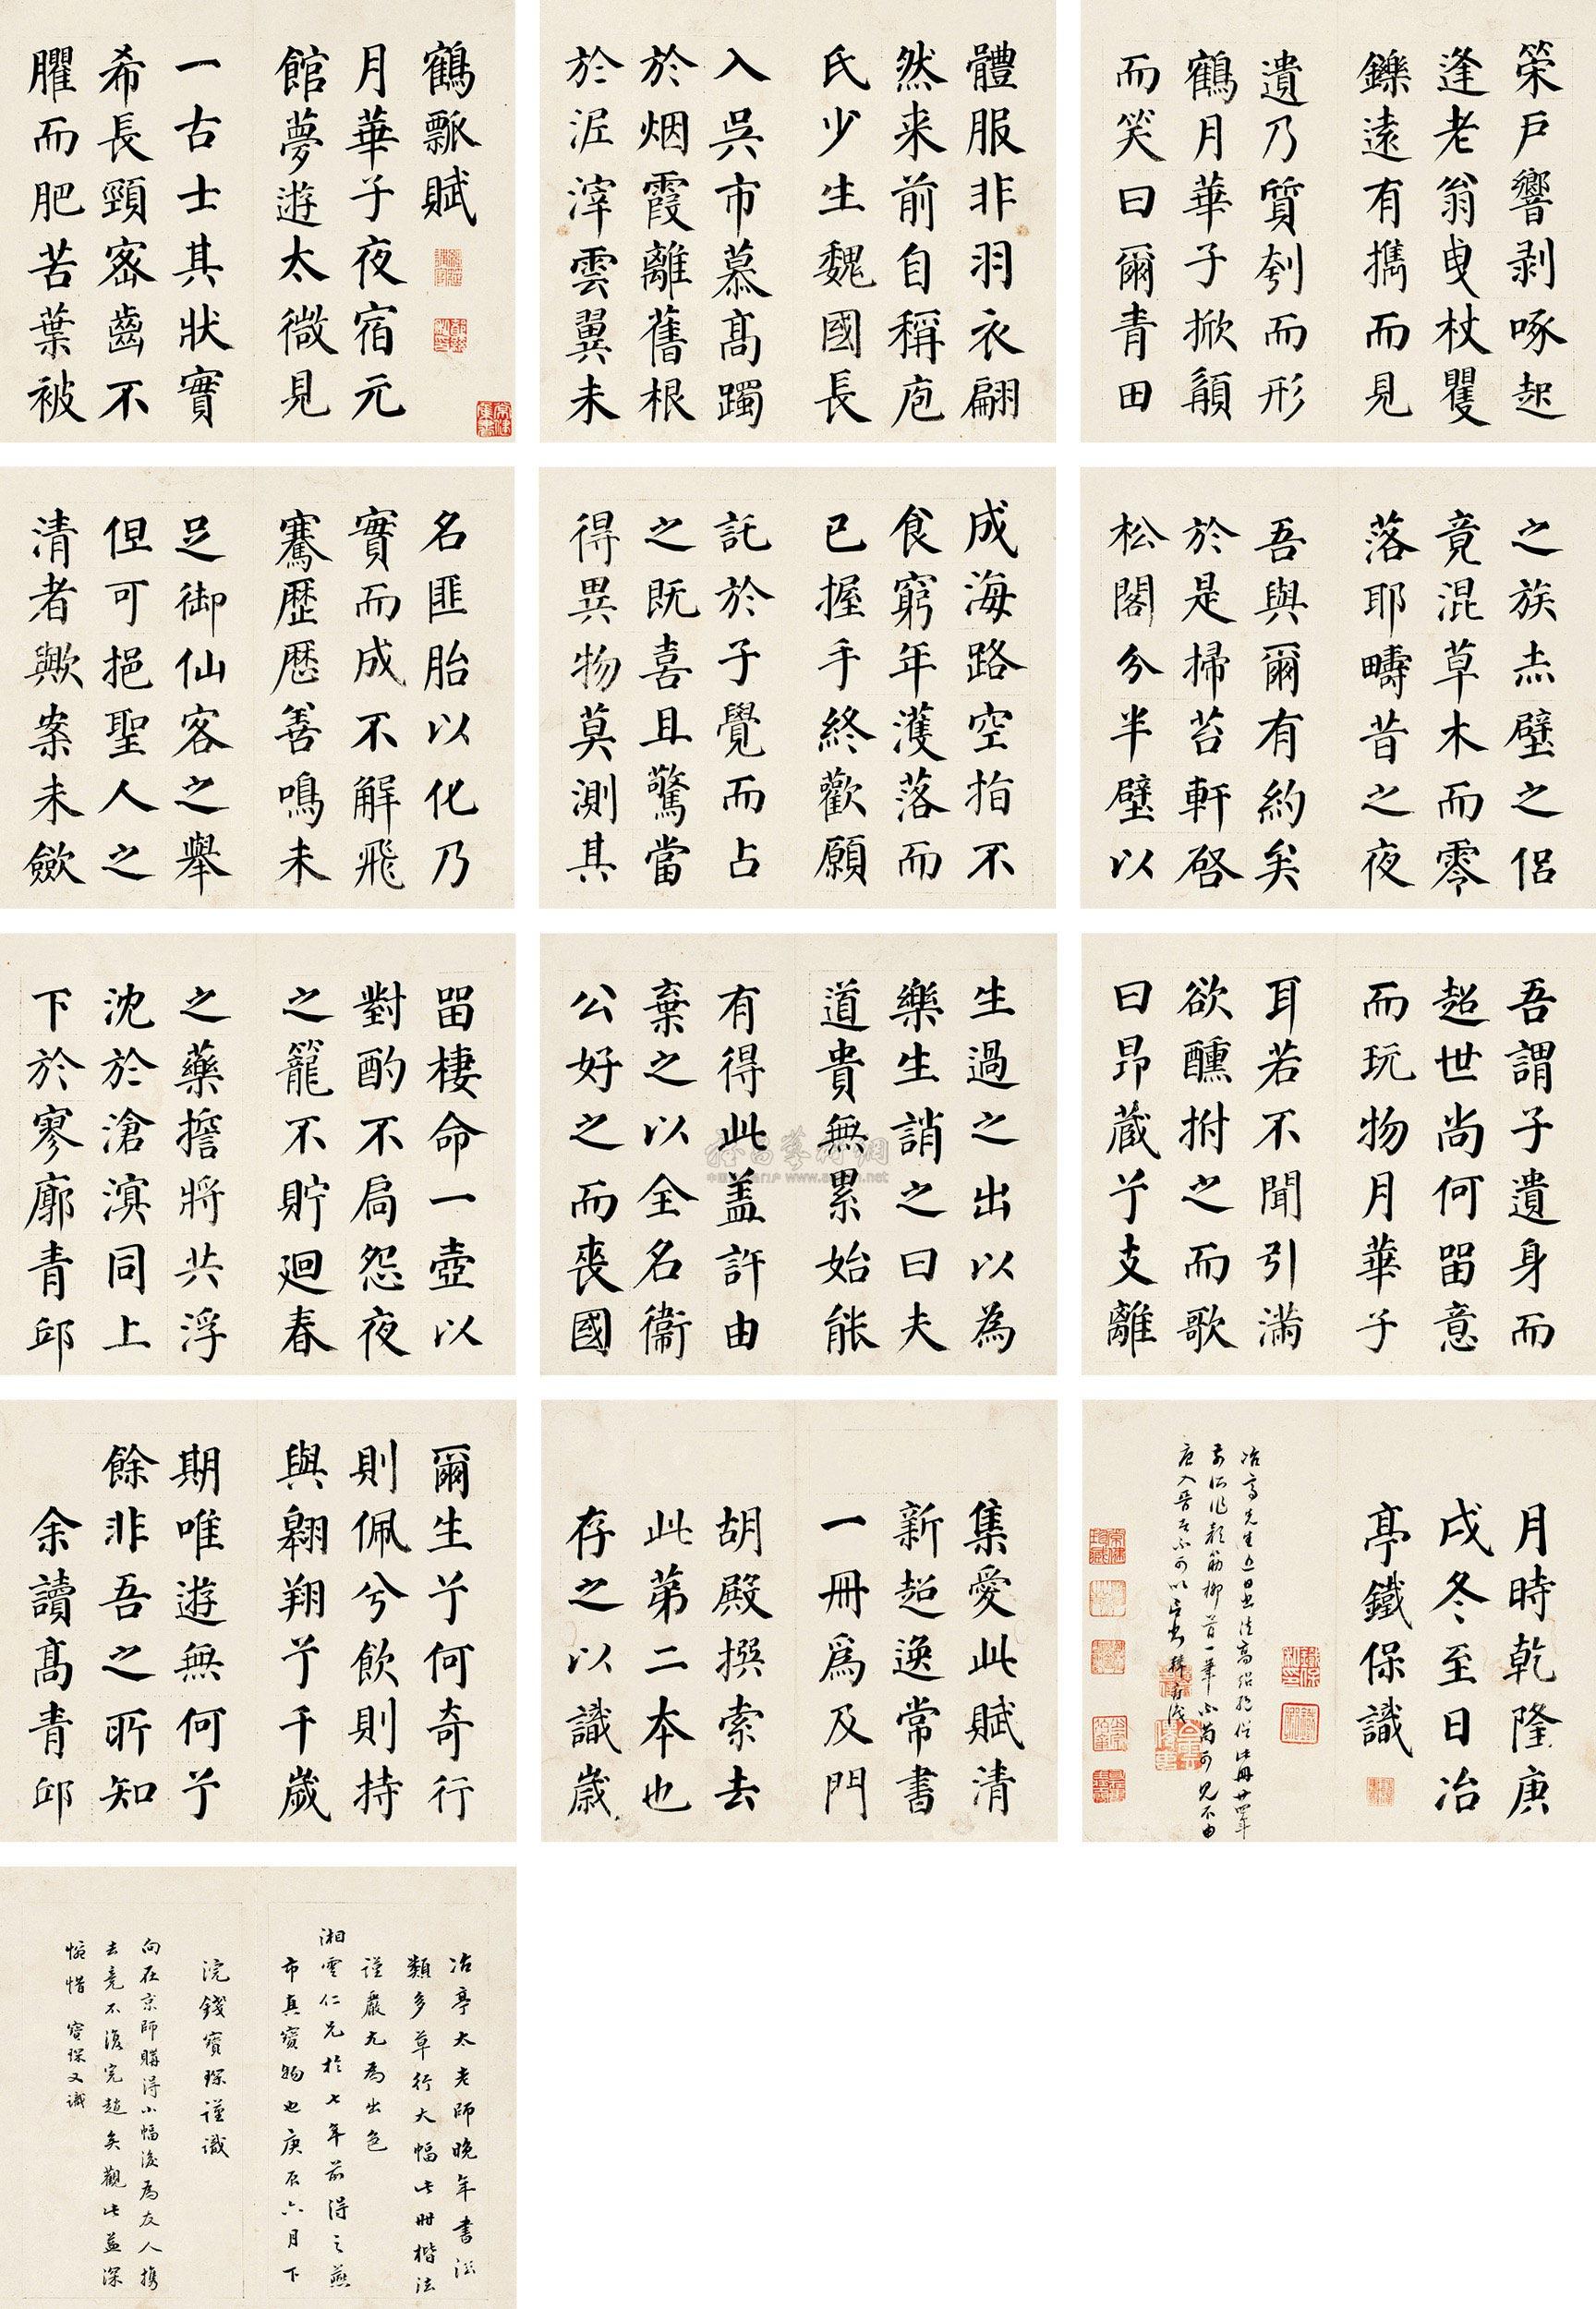 鶴瓢賦
月華子夜宿元
館夢遊太微見
一古士其狀實
希長頸密齒不
臞而肥苦葉被
體服非羽衣翩
然来前自稱庖
氏少生魏國長
入吳市慕高躅
於烟霞離舊根
於泥滓雲翼未
策戶響剥啄起
逢老翁曳杖矍
鑠遠有攜而見
遺乃質刳而形
鶴月華子掀髯
而笑曰爾青田
名匪胎以化乃
實而成不解飛
騫歷歷善鳴未
足御仙客之舉
但可挹聖人之
清者歟案未斂
成海路空指不
食窮年濩落而
已握手終歡願
託於子覺而占
之既喜且驚當
得異物莫測其
之族赤壁之侶
竟混草木而零
落耶疇昔之夜
吾與爾有約矣
於是掃苔軒啓
松閣分半壁以
留棲命一壺以
對酌不局怨夜
之籠不貯迴春
之藥擔將共浮
沈於滄溟同上
下於寥廓青邱
生過之出以為
樂生誚之曰夫
道貴無累始能
有得此蓋許由
棄之以全名衛
公好之而喪國
吾謂子遺身而
超世尚何留意
而玩物月華子
耳若不聞引滿
欲醺拊之而歌
曰昂藏兮支離
爾生兮何奇行
則佩兮飲則持
與翱翔兮千歲
期唯遊無何兮
餘非吾之所知
余讀高青邱
集愛此賦清
新超逸常書
一冊為及門
胡殿撰索去
此第二本也
存之以識歲
月時乾隆庚
戌冬至日冶
亭鐵保識
冶亭太老師晚年書法
類多草行大幅此冊楷法
謹嚴尤為出色
湘雲仁兄於七年前得之燕
市真寶物也庚辰六月下
浣錢寶琛謹識
向在京師購得小幅後為友人攜
去竟不復完趙矣觀此益深
惋惜 寶琛又識